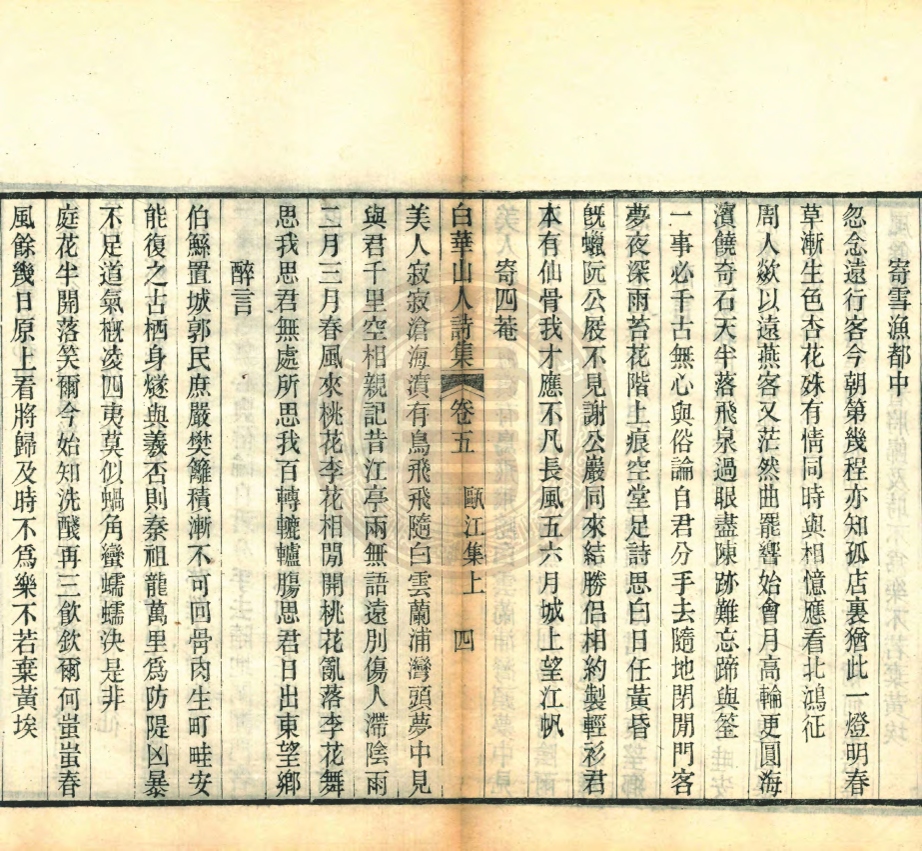 寄雪漁都中
忽念遠行客今朝第幾程亦知孤店裏猶此一燈明春
草漸生色杏花殊有情同時與相憶應看北鴻征
周人歘以遠燕客又茫然曲罷響始會月高輪更圓海
濱饒奇石天半落飛泉過眼盡陳跡難忘蹄與筌
一事必千古無心與俗論自君分手去隨地閉閒門客
夢夜深雨苔花階上痕空堂足詩思白日任黃昏
旣蠟阮公屐不見謝公巖同來結勝侶相約製輕衫君
本有仙骨我才應不凡長風五六月城上望江帆
寄四菴
白華山人詩集 卷五 甌江集上 四
美人寂寂滄海濆有鳥飛飛隨白雲蘭浦灣頭夢中見
與君千里空相親記昔江亭兩無語遠別傷人滯陰雨
二月三月春風來桃花李花相閒開桃花亂落李花舞
思我思君無處所思我百轉轆轤腸思君日出東望鄉
醉言
伯鯀置城郭民庶嚴樊籬積漸不可回骨肉生町畦安
能復之古栖身燧與羲否則秦祖龍萬里爲防隄凶暴
不足道氣概凌四夷莫似蝸角蠻蠕蠕決是非
庭花半開落笑爾今始知洗醆再三飮飮爾何蚩蚩春
風餘幾日原上看將歸及時不爲樂不若棄黃埃